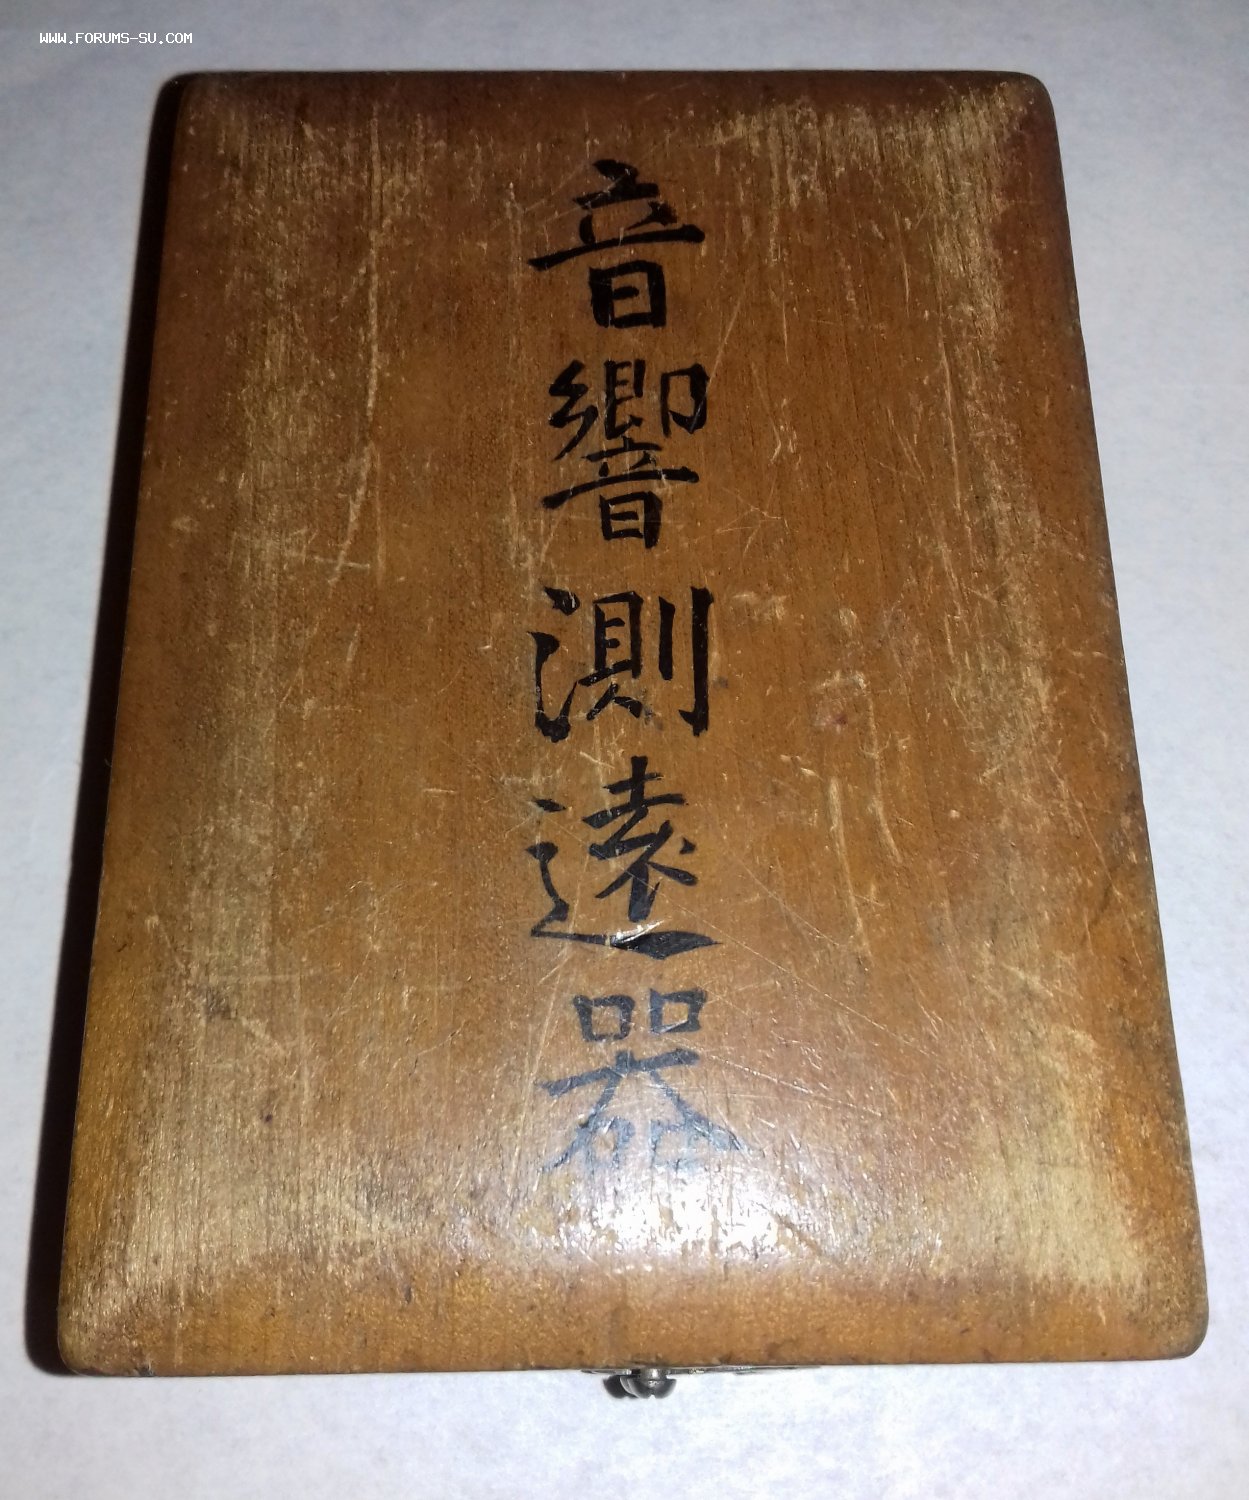 WWW.FORUMS-SU.COM
音響測遠器